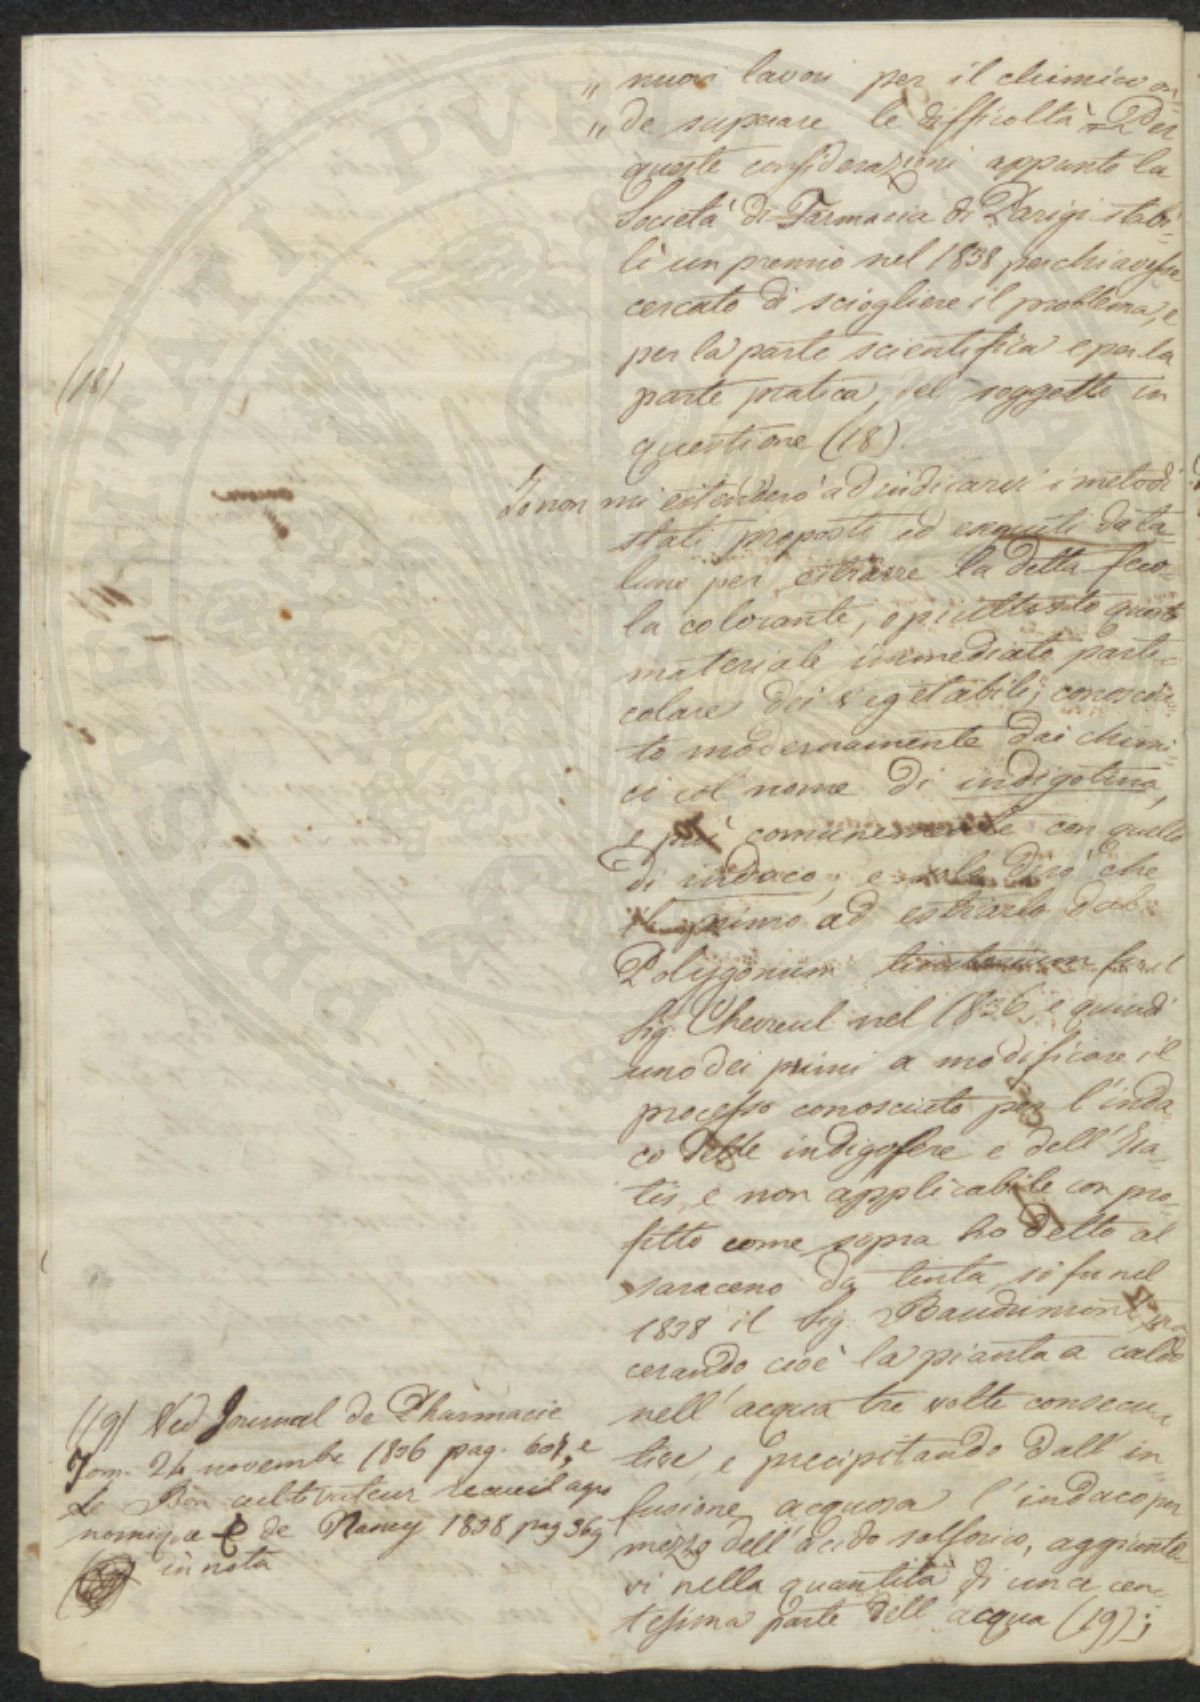 „ nuovi lavori per il chimico on-
„ de superare le difficoltà = Per
queste considerazioni appunto la
Società di Farmacia di Parigi stabi-
lì un premio nel 1838 per chi avesse
cercato di sciogliere il problema, e
per la parte scientifica e per la
parte pratica, del soggetto in
questione (18).
(18)
Io non mi estenderò ad indicarvi i metodi
stati proposti ed eseguiti da ta-
luno per estrarre la detta feco-
la colorante, o piuttosto questo
materiale immediato parti-
colare dei vegetabili, conosciu-
to modernamente dai chimi-
ci col nome di indigotina,
e più comunemente con quello
di indaco; e solo dirò che
il primo ad estrarlo dal
Polygonum tinctorium fu il
Sig. Chevreul nel 1836, e quindi
uno dei primi a modificare il
processo conosciuto per l'inda
co delle indigofere e dell'Isa-
tis, e non applicabile con pro-
fitto come sopra ho detto al
saraceno da tinta, si fu nel
1838 il Sig. Baudrimont, ma
cerando cioè la pianta a caldo
nell'acqua tre volte consecu-
tive, e precipitando dall'in-
fusione acquosa l'indaco per
mezzo dell'acido solforico, aggiunto-
vi nella quantità di una cen-
tesima parte dell'acqua (19);
(19) Ved Journal de Pharmacie
Tom. 24 novembre 1836 pag. 607, e
Le Bon cultivateur recueil agro
nomique de Nancy 1838 pag 369
in nota